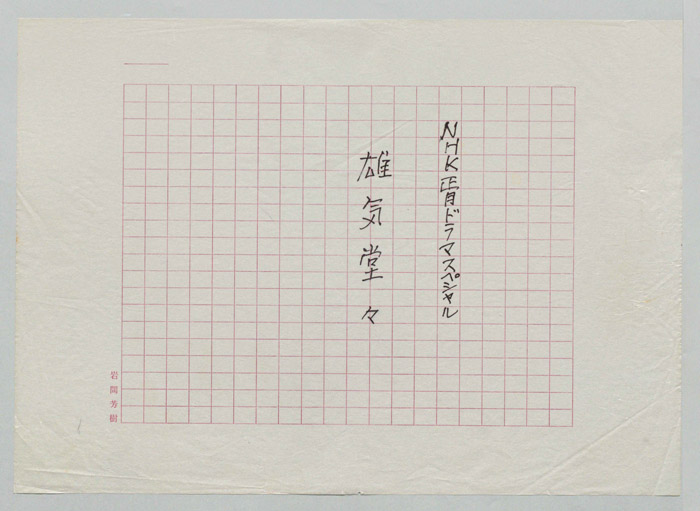 NHK正月ドラマスペシャル
雄気堂々
岩間芳樹